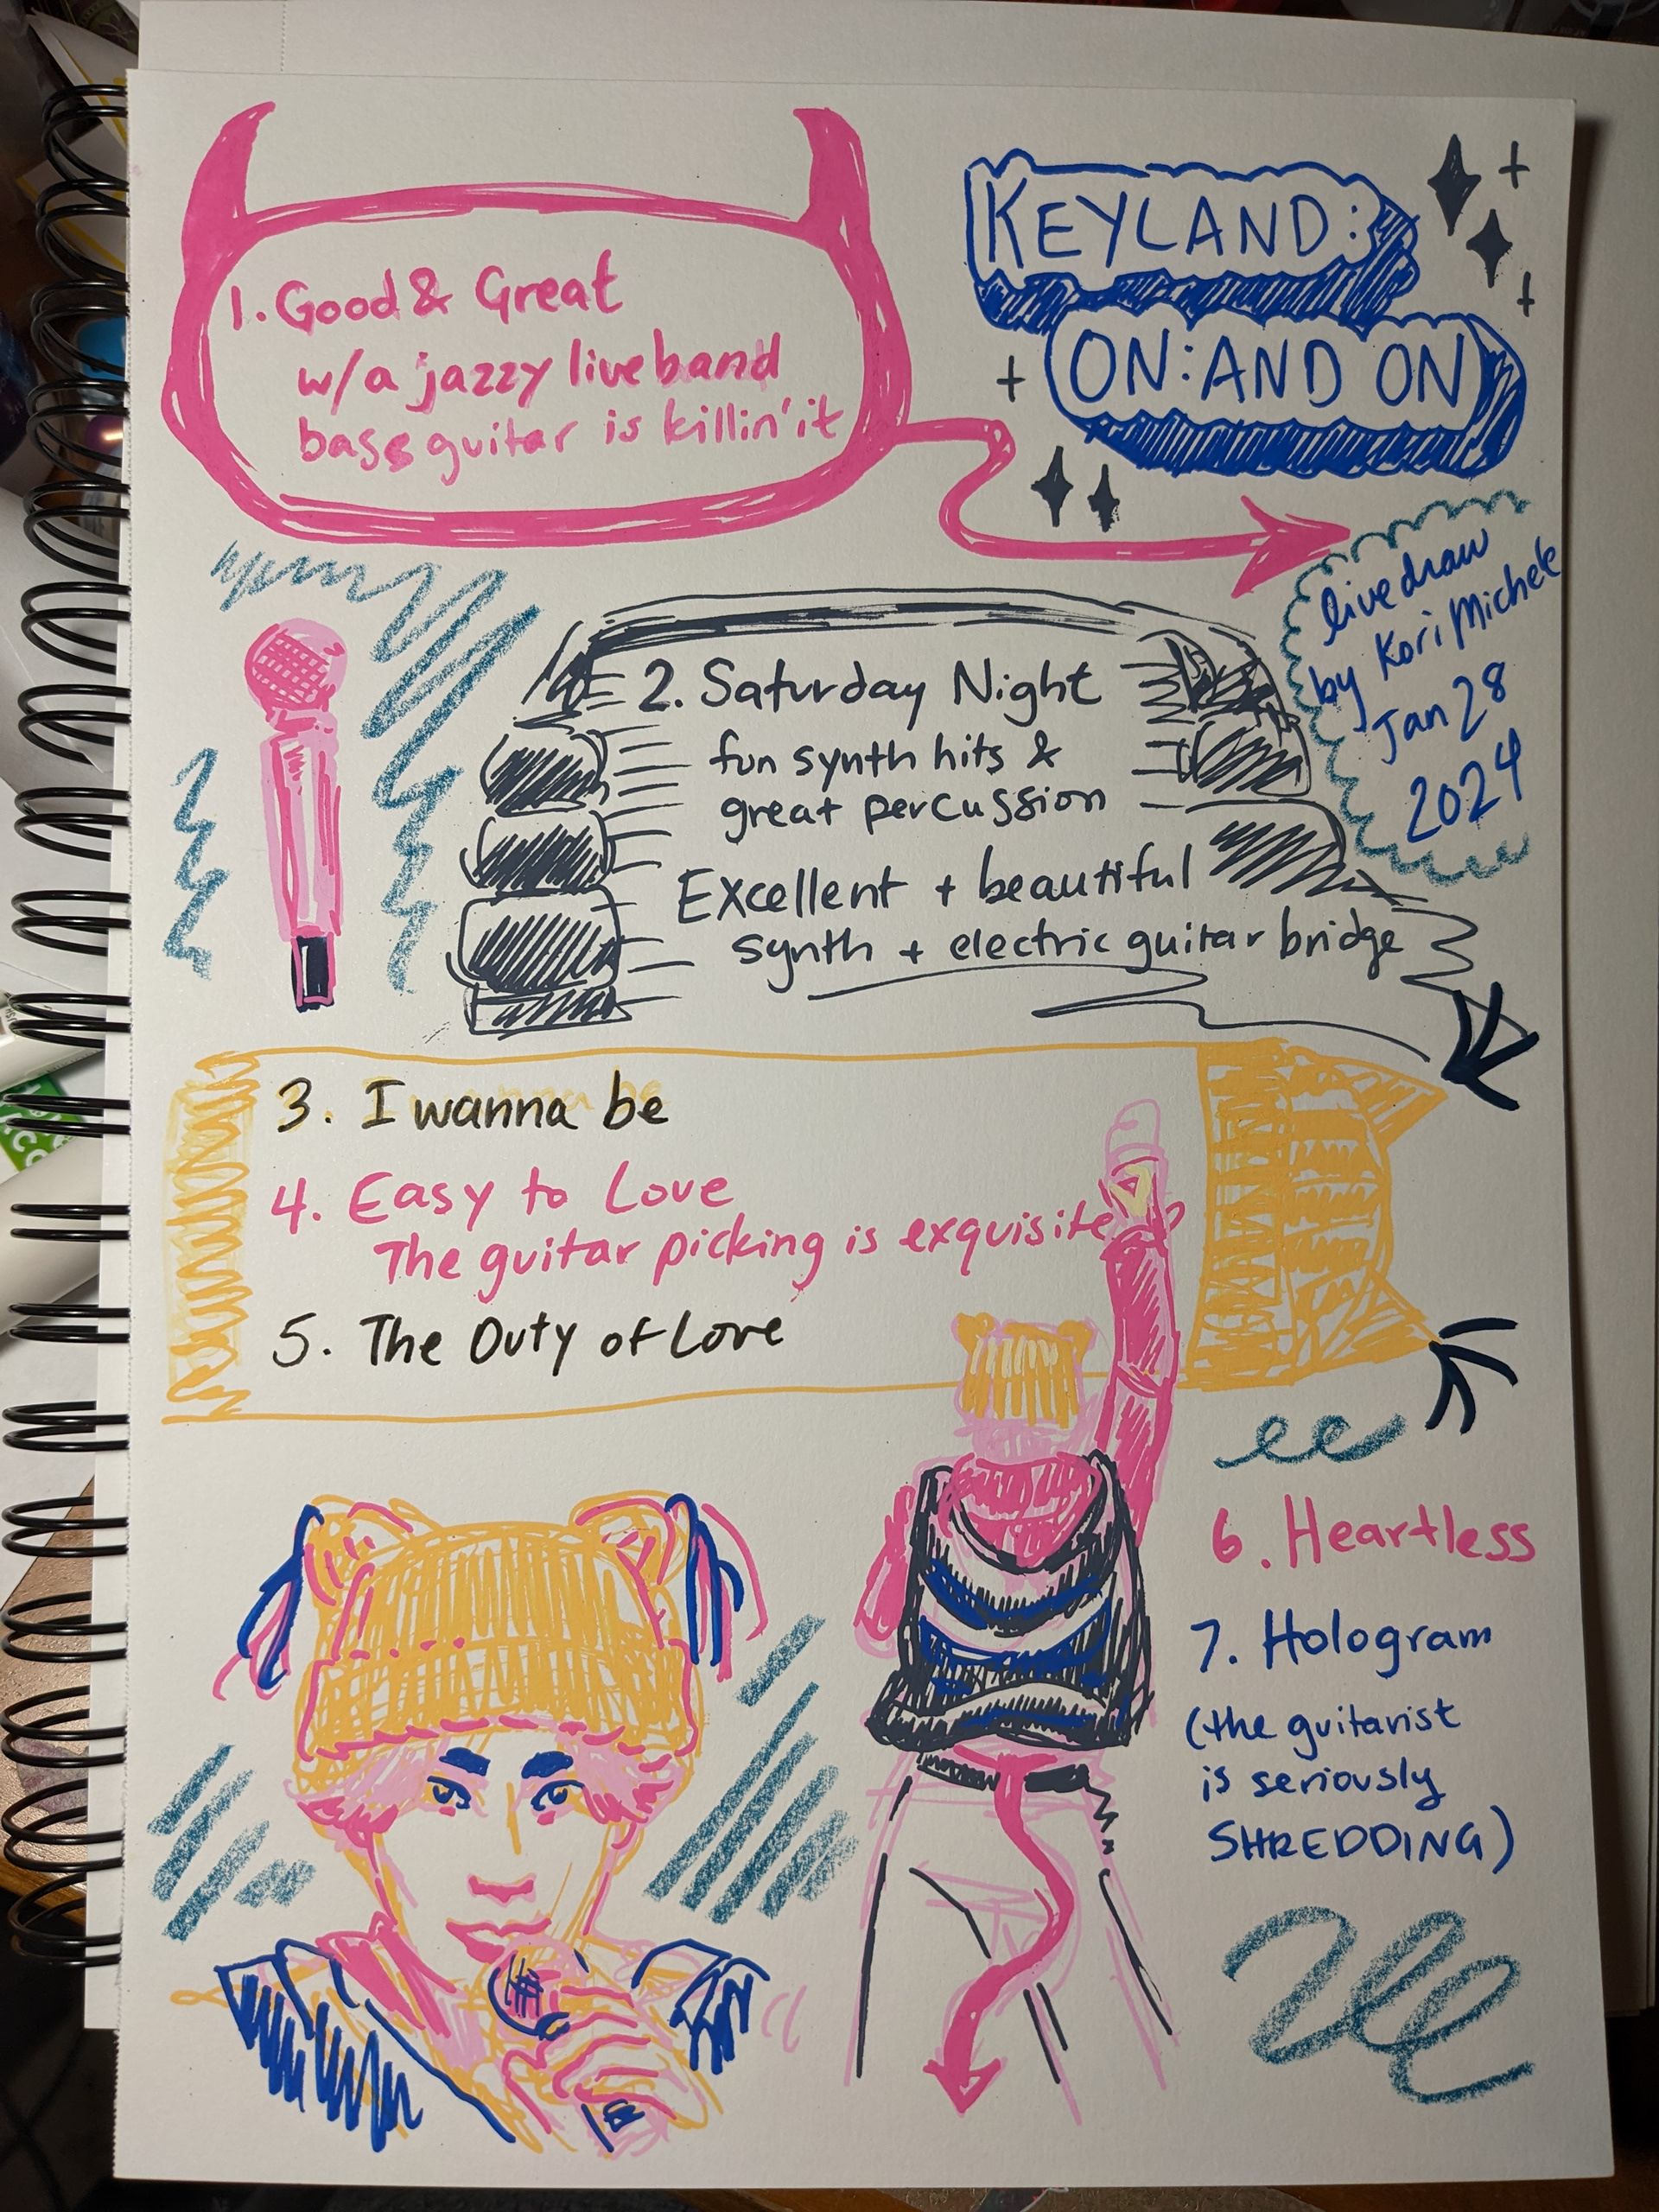 KEYLAND:
ON:AND ON
1. Good & Great
w/a jazzy live band
bass guitar is killin' it
live draw
by Kori Michele
Jan 28
2024
2. Saturday Night
fun synth hits &
great percussion
Excellent + beautiful
synth + electric guitar bridge
3. I wanna be
4. Easy to Love
The guitar picking is exquisite
5. The Duty of Love
6. Heartless
7. Hologram
(the guitarist
is seriously
SHREDDING)